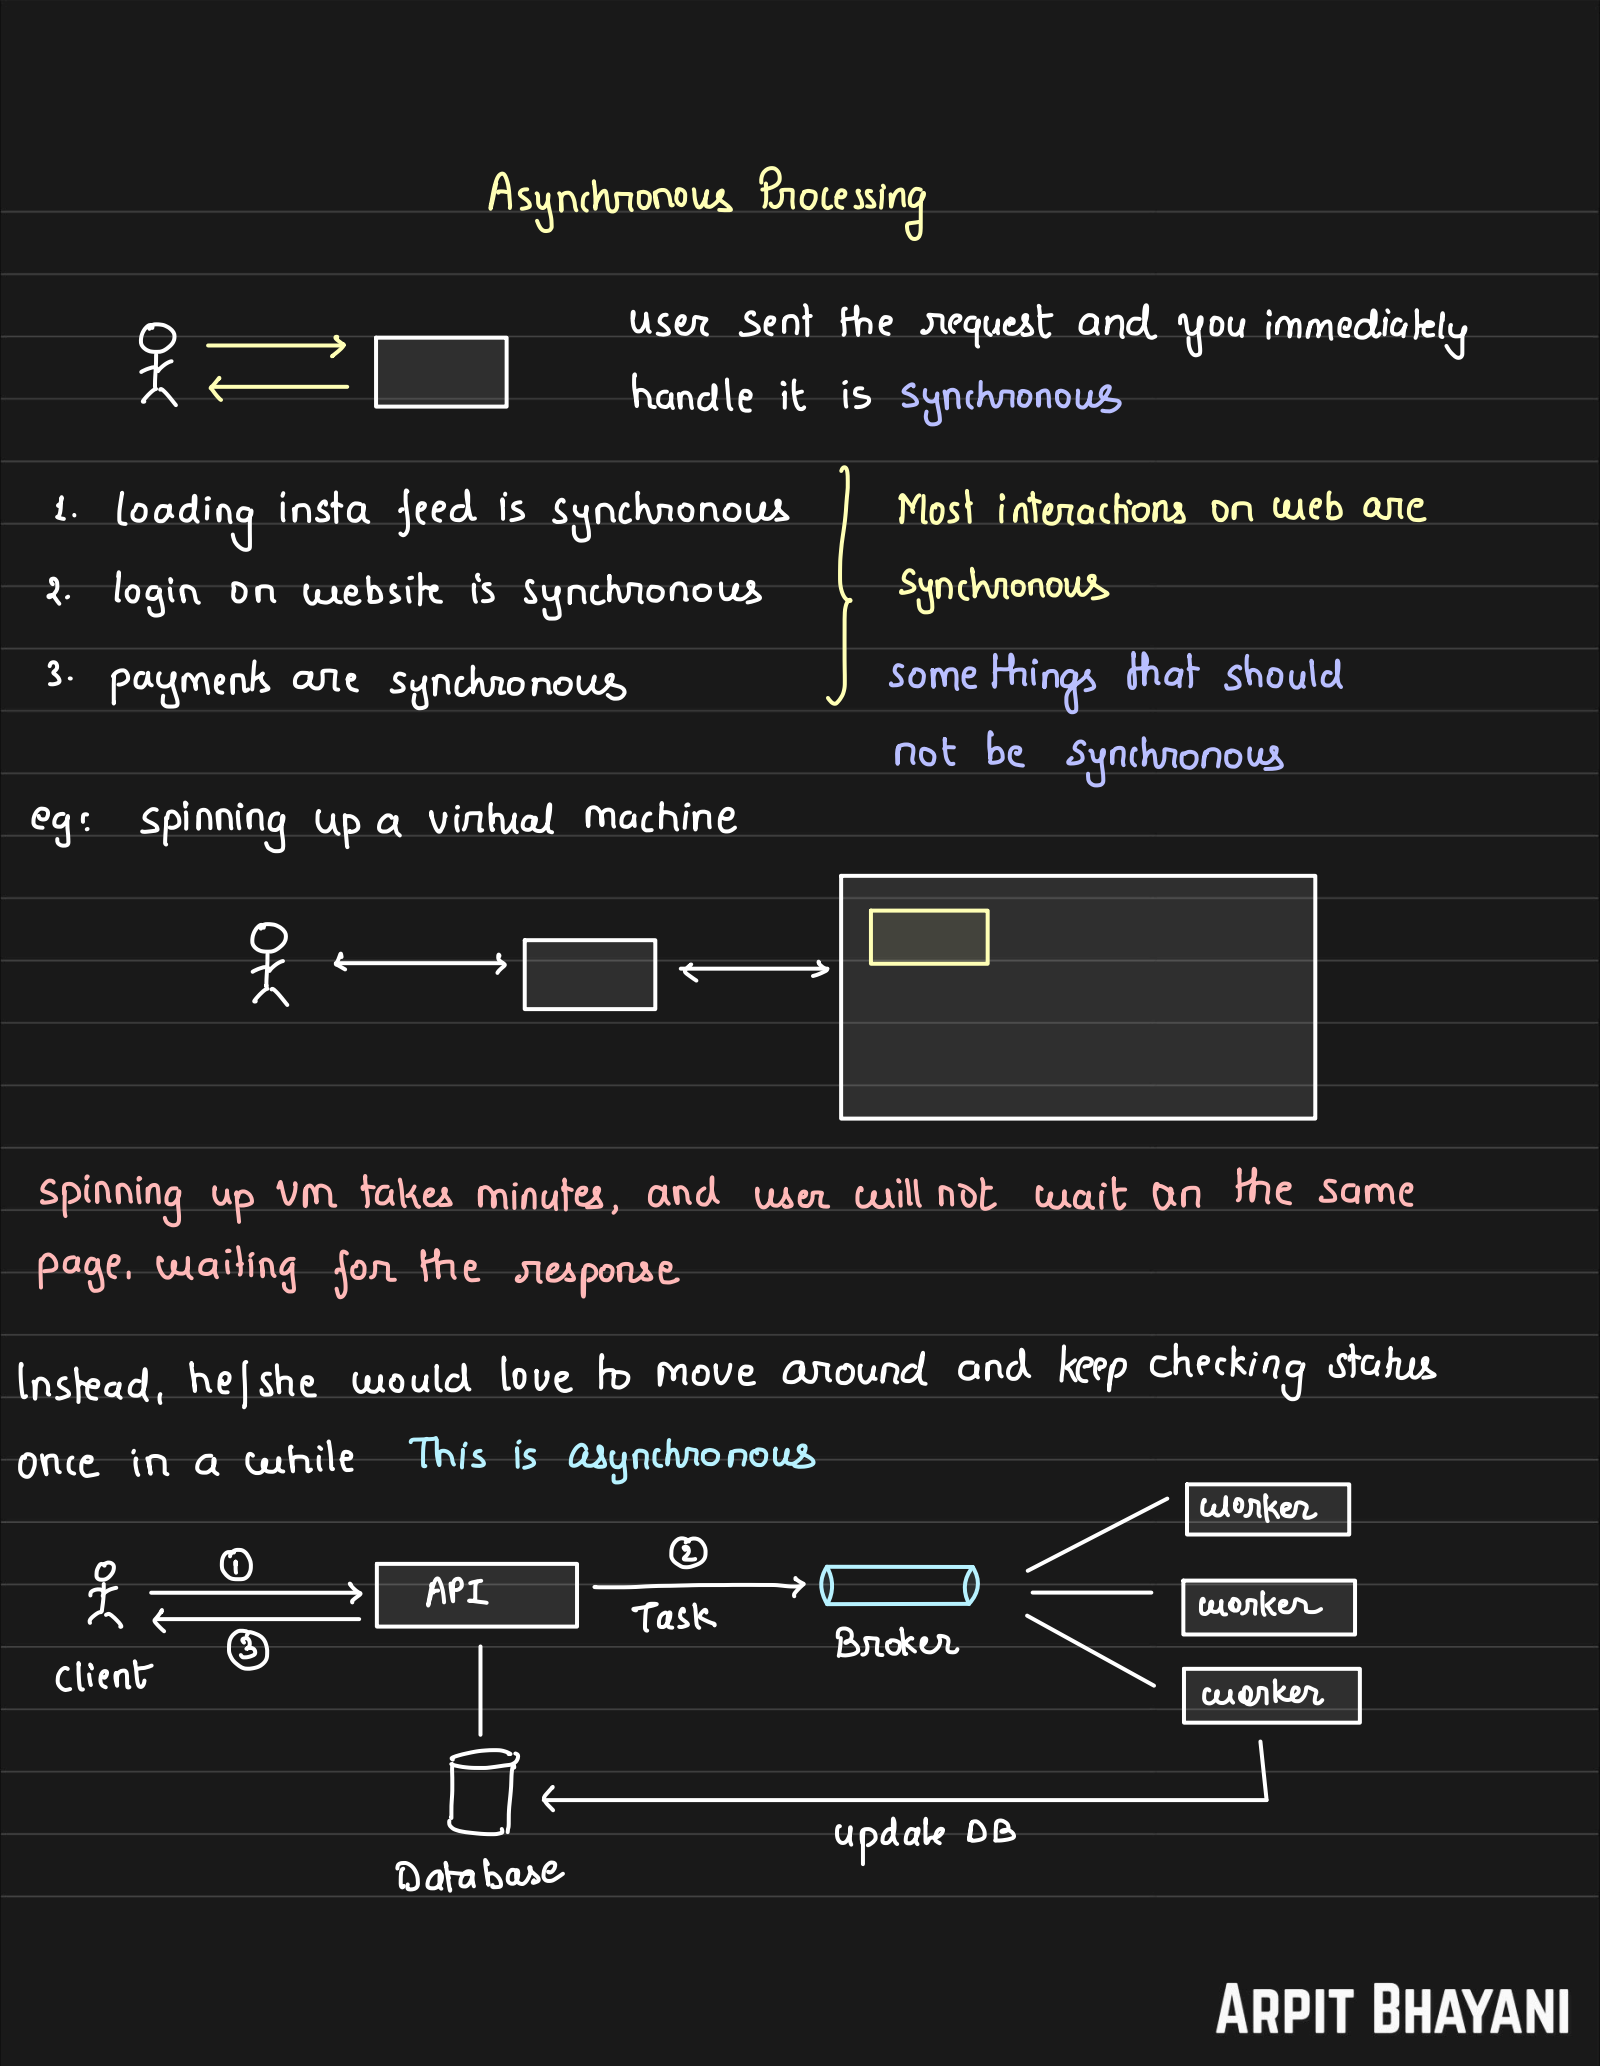 Asynchronous Processing
user sent the request and you immediately
handle it is synchronous
1. loading insta feed is synchronous
2. login on website is synchronous
3. payments are synchronous
Most interactions on web are
synchronous
some things that should
not be synchronous
eg: spinning up a virtual machine
spinning up vm takes minutes, and user will not wait on the same
page. waiting for the response
Instead, he/she would love to move around and keep checking status
once in a while This is asynchronous
1
API
3
client
2
Task
Broker
worker
worker
worker
Database
update DB
ARPIT BHAYANI